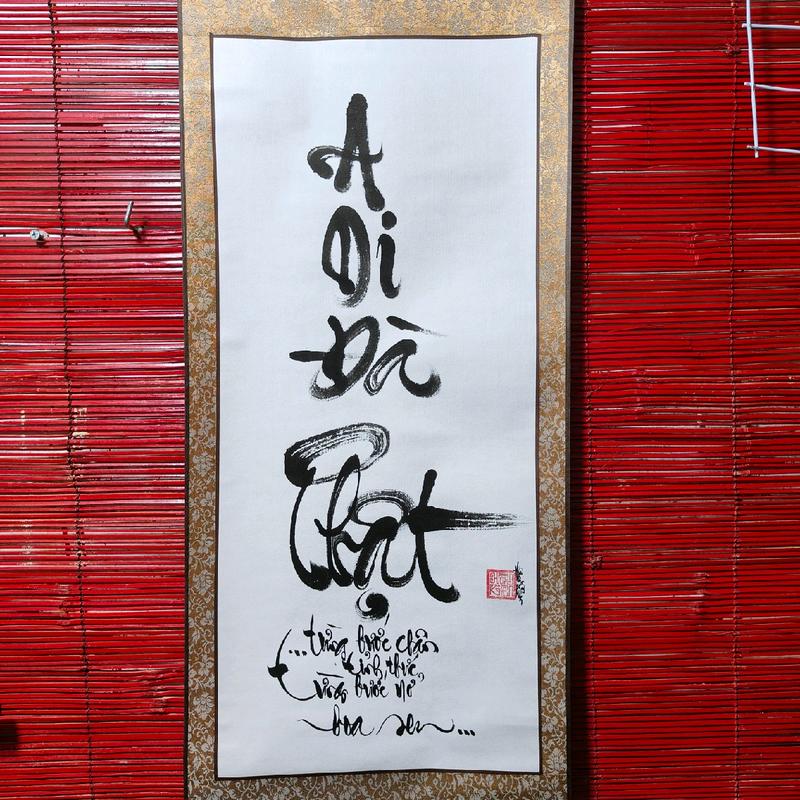 A
Di
Đà
Phật
...từng bước chân
tỉnh thức,
từng bước nở
hoa sen...